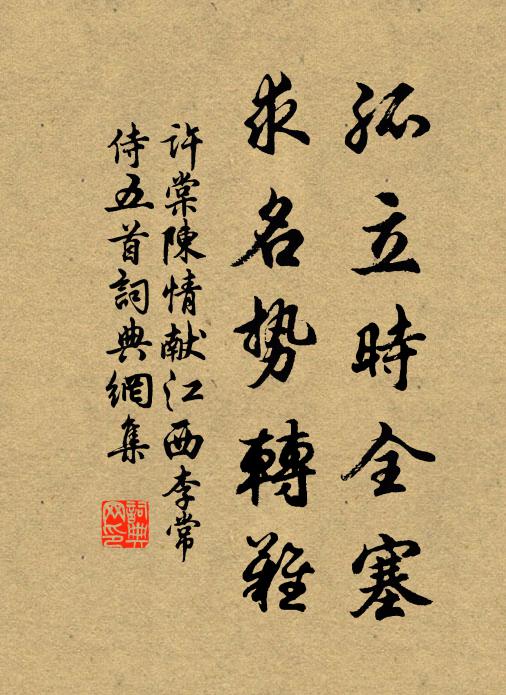 孤立時全塞
求名势轉難
許棠陳情献江西李常
侍五首詞典網集
詞典
网印